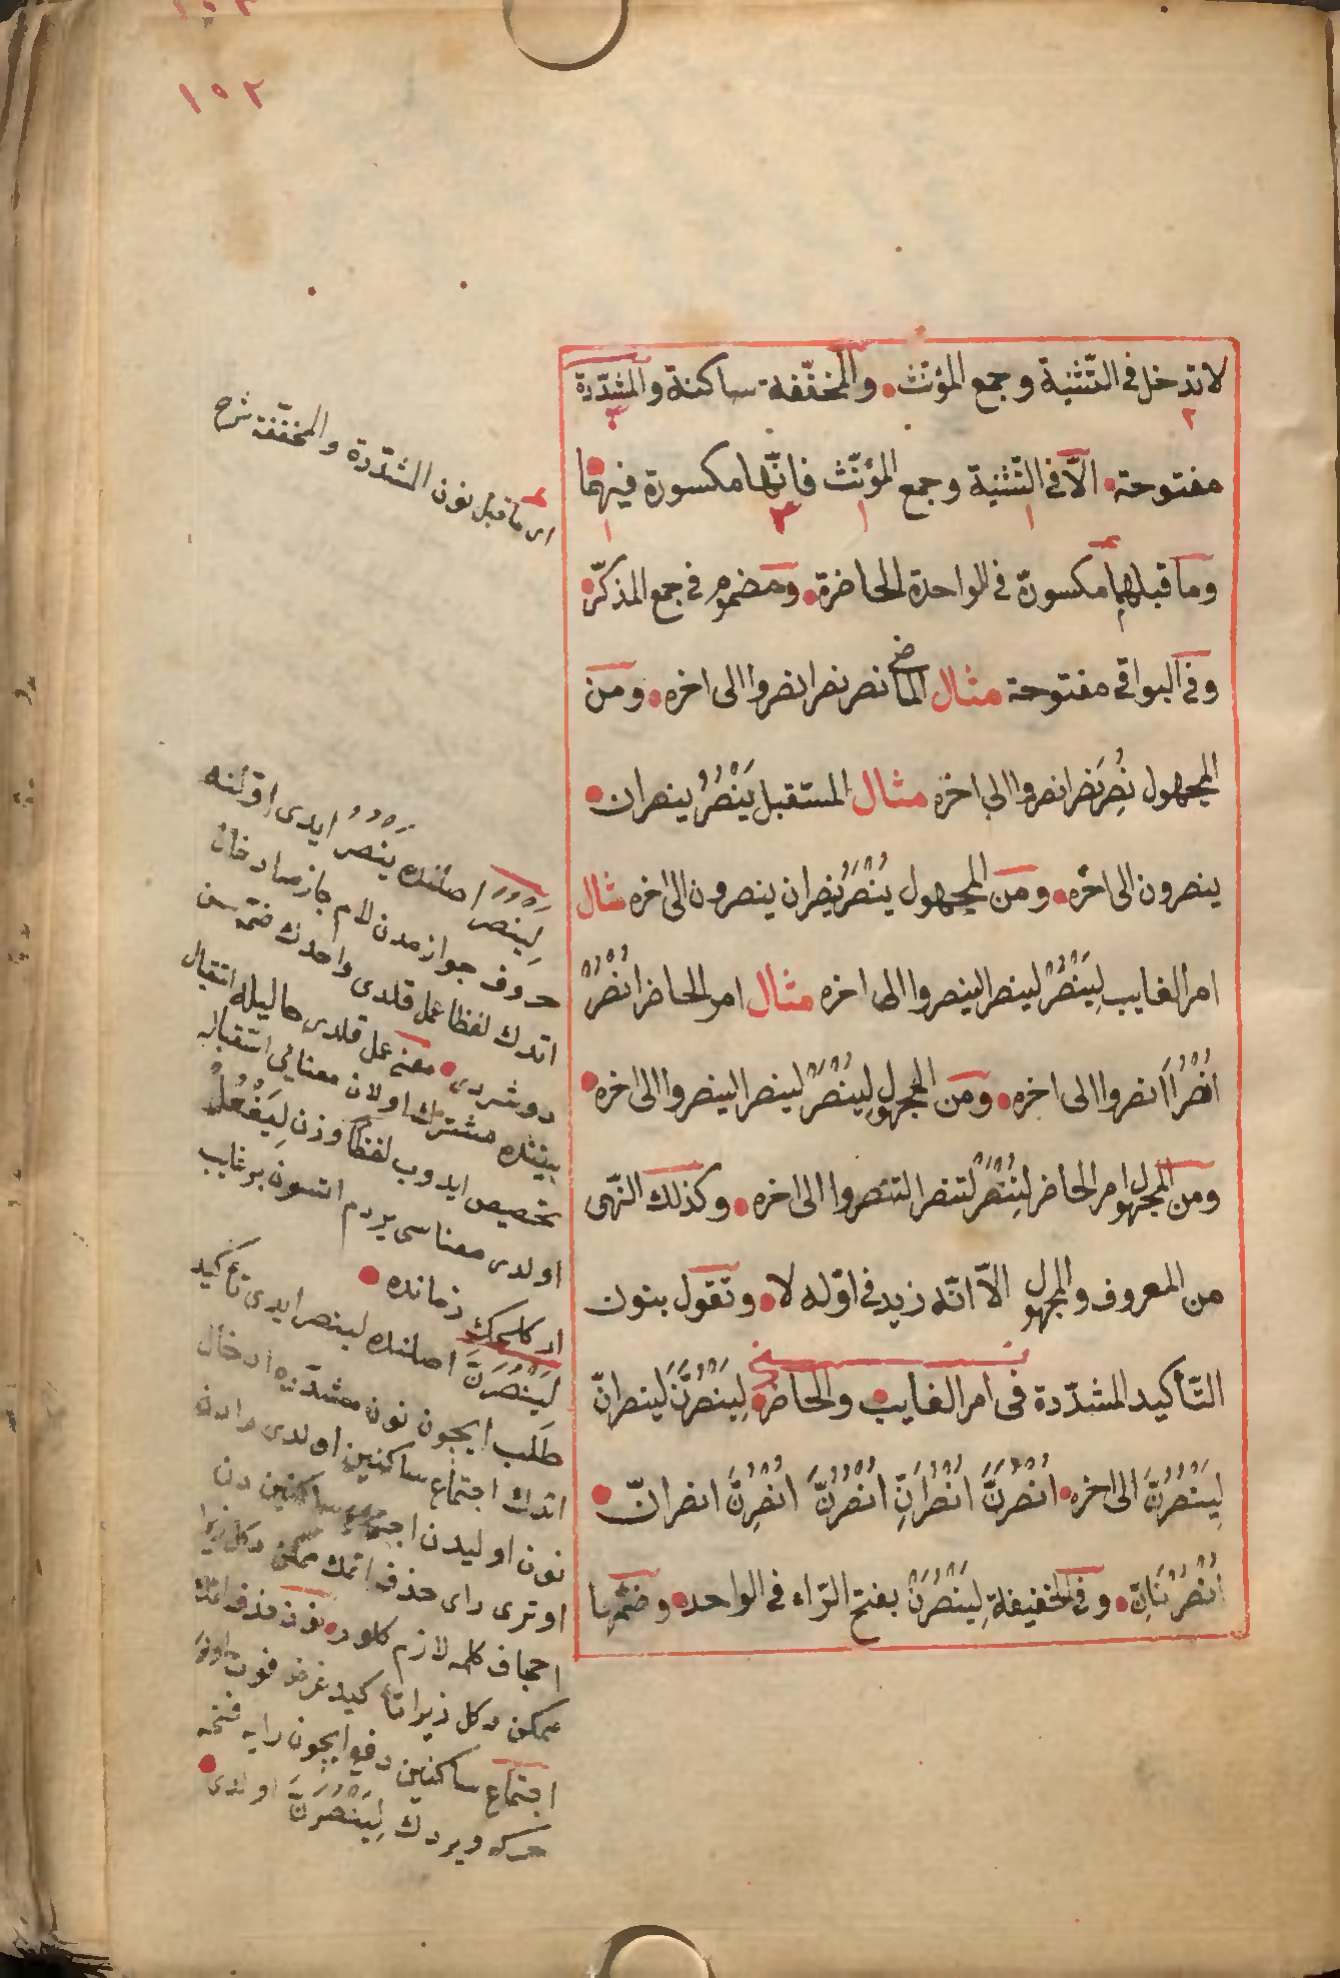 ١٠٢
لا تدخل فى التّثنية وجمع المؤنّث والمخفّفة ساكنة والمشدّدة
مفتوحة الّا فى التّثنية وجمع المؤنّث فانّها مكسورة فيهما
وما قبلهما مكسورة فى الواحدة الحاضرة ومضموم فى جمع المذكّر
وفى البواقى مفتوحة مثال الماضى نصر نصرا نصروا الى اخره ومن
المجهول نُصِرَ نصرا نصروا الى اخره مثال المستقبل يَنْصُرُ ينصران
ينصرون الى اخره ومن المجهول يُنْصَرُ ينصران ينصرون الى اخره مثال
امر الغايب لِيَنْصُرْ لينصرا لينصروا الى اخره مثال امر الحاضر اُنْصُرْ
اُنْصُرَا انصروا الى اخره ومن المجهول لِيُنْصَرْ لينصرا لينصروا الى اخره
ومن المجهول امر الحاضر لِتُنْصَرْ لتنصرا لتنصروا الى اخره وكذلك النّهى
من المعروف والمجهول الّا انّه زيد فى اوّله لا وتقول بنون
التّأكيد المشدّدة فى امر الغايب والحاضر لِيَنْصُرَنَّ لينصرانّ
لِيَنْصُرُنَّ الى اخره اُنْصُرَنَّ اُنْصُرَانِّ اُنْصُرُنَّ اُنْصُرِنَّ انصرانّ
اُنْصُرْنَانِّ وفى الخفيفة لِيَنْصُرَنْ بفتح الرّاء فى الواحد وضمّها
اى ما قبل نون المشدّدة والمخفّفة شرح
لِيَنْصُرْ اصلنده يَنْصُرُ ايدى اوّلنه
حروف جوازمدن لام جازمه ادخال
اتدك لفظا عمل قلدى واحدك ضمّه سن
دوشردى معنه عمل قلدى حاليله استقبال
بيننده مشترك اولان معنايى استقباله
تخصيص ايدوب لفظا وزن لِيَفْعُلْ
اولدى معناسى يردم اتسون بر غايب
ار كلجك زمانده
لِيَنْصُرَنَّ اصلنده لينصر ايدى تأكيد
طَلَب ايچون نون مشدّده ادخال
اتدك اجتماع ساكنين اولدى رادن
نون اوليدن اجتماع ساكنين دن
اوترى راى حذف اتمك ممكن دكل زيرا
احجاف كلمه لازم كلور نون حذف اتمك
ممكن دكل زيرا تأكيد غرض فوت اولور
اجتماع ساكنين دفع ايچون رايه فتحه
حركه ويردك لِيَنْصُرَنَّ اولدى